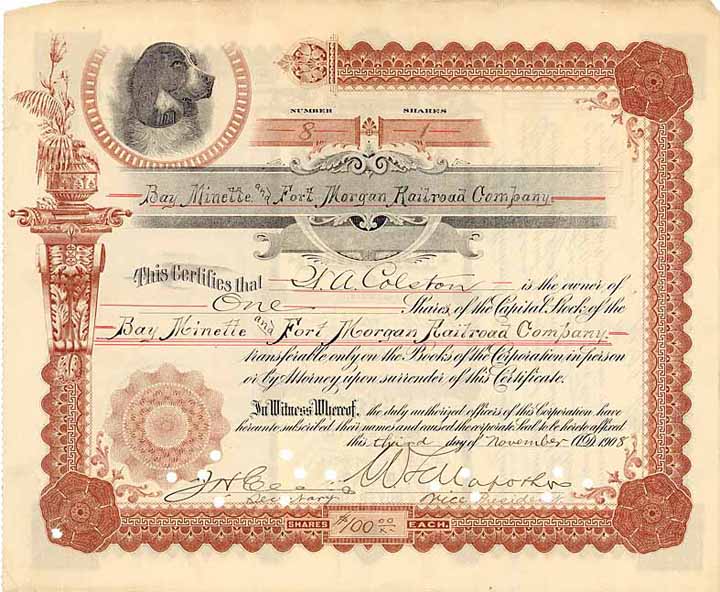 NUMBER SHARES
8 1
Bay Minette and Fort Morgan Railroad Company
This Certifies that W. A. Colston is the owner of
One Shares of the Capital Stock of the
Bay Minette and Fort Morgan Railroad Company
transferable only on the Books of the Corporation in person
or by Attorney upon surrender of this Certificate.
In Witness Whereof, the duly authorized officers of this Corporation have
hereunto subscribed their names and caused the corporate Seal to be hereto affixed
this third day of November A.D. 1908
Secretary Vice President
SHARES $100.00 EACH.